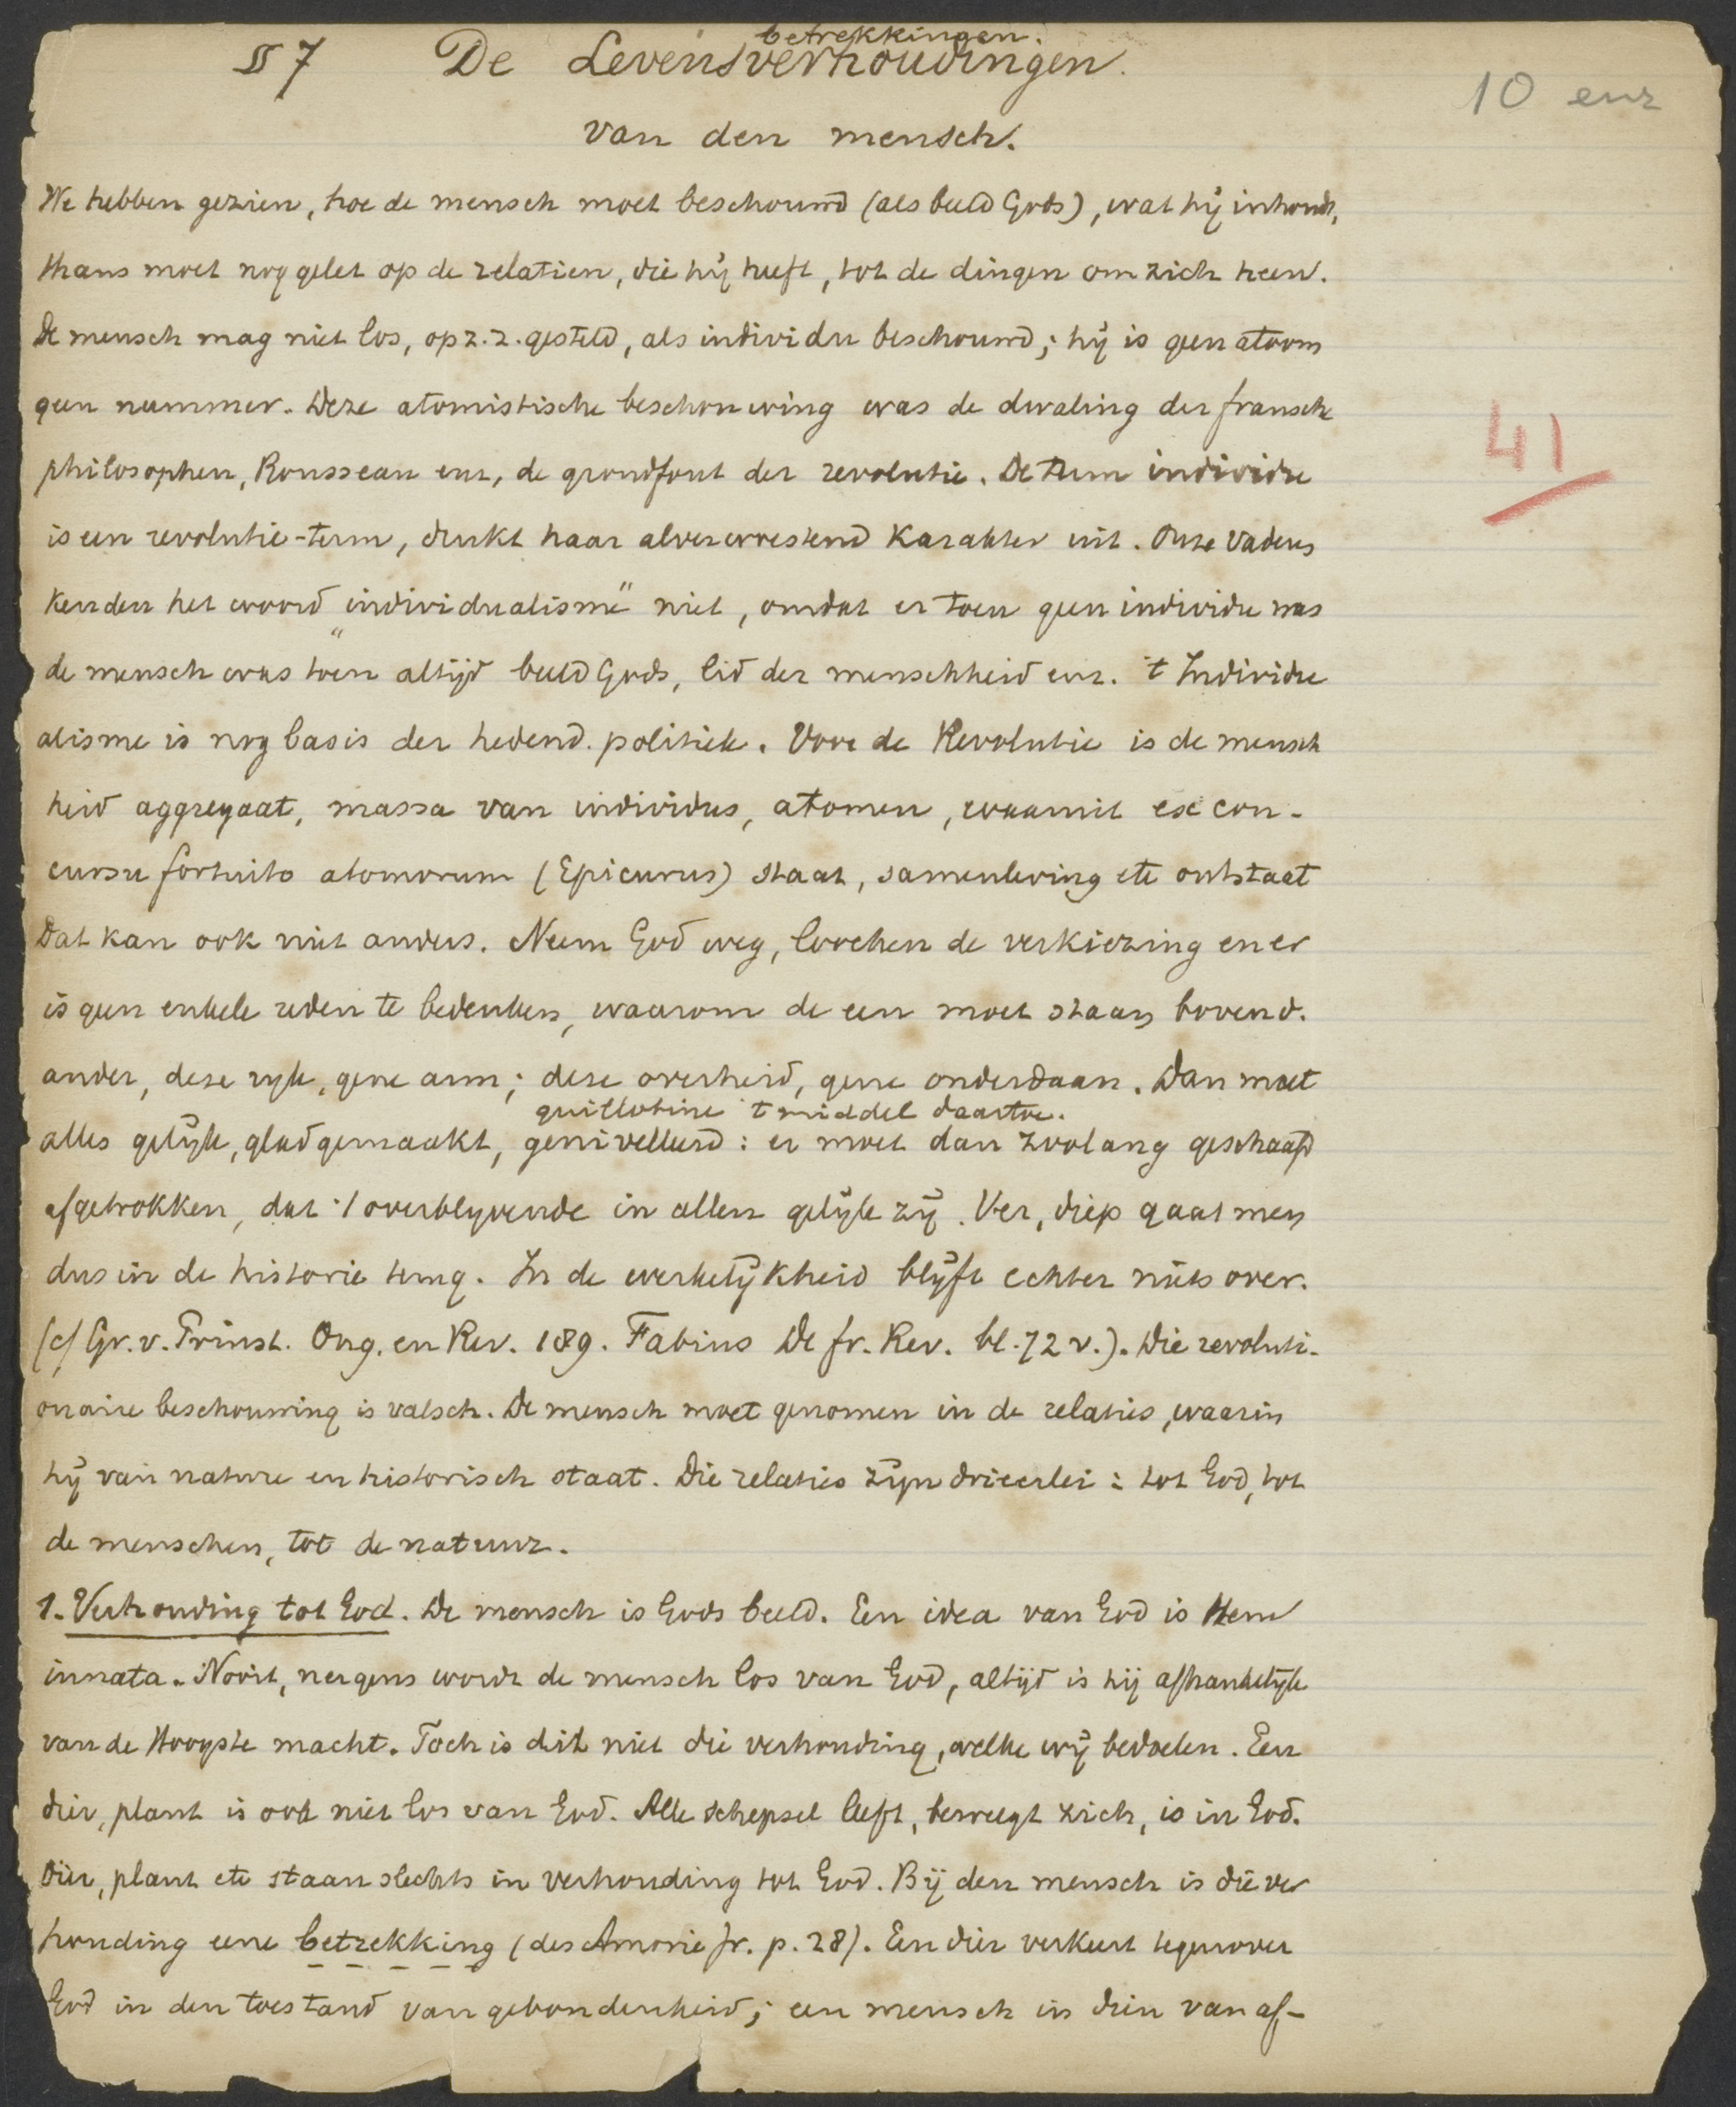 betrekkingen.
§ 7 De Levensverhoudingen.
10 enz
van den mensch.
We hebben gezien, hoe de mensch moet beschouwd (als beeld Gods), wat hij inhoudt,
thans moet nog gelet op de relatien, die hij heeft, tot de dingen om zich heen.
De mensch mag niet los, op z. z. gesteld, als individu beschouwd; hij is geen atoom
geen nummer. Deze atomistische beschouwing was de dwaling der fransche
41
philosophen, Rousseau enz, de grondfout der revolutie. De term individu
is een revolutie-term, drukt haar alverwoestend karakter uit. Onze vaderen
kenden het woord „individualisme" niet, omdat er toen geen individu was
de mensch was toen altijd beeld Gods, lid der menschheid enz. 't Individu
alisme is nog basis der hedend. politiek. Voor de Revolutie is de mensch
heid aggregaat, massa van individus, atomen, waaruit ex con-
cursu fortuito atomorum (Epicurus) staat, samenleving etc ontstaat
Dat kan ook niet anders. Neem God weg, loochen de verkiezing en er
is geen enkele reden te bedenken, waarom de een moet staan boven d.
ander, deze rijk, gene arm; deze overheid, gene onderdaan. Dan moet
guillotine 't middel daartoe.
alles gelijk, glad gemaakt, genivelleerd: er moet dan zoolang geschaafd
afgetrokken, dat 't overblijvende in allen gelijk zij. Ver, diep gaat men
dus in de historie terug. In de werkelijkheid blijft echter niets over.
(cf Gr. v. Prinst. Ong. en Rev. 189. Fabius De fr. Rev. bl. 72 v.). Die revoluti-
onaire beschouwing is valsch. De mensch moet genomen in de relaties, waarin
hij van nature en historisch staat. Die relaties zijn drieerlei: tot God, tot
de menschen, tot de natuur.
1. Verhouding tot God. De mensch is Gods beeld. Een idea van God is Hem
innata. Nooit, nergens wordt de mensch los van God, altijd is hij afhankelijk
van de Hoogste macht. Toch is dit niet die verhouding, welke wij bedoelen. Een
dier, plant is ook niet los van God. Alle schepsel leeft, beweegt zich, is in God.
Dier, plant etc staan slechts in verhouding tot God. Bij den mensch is die ver
houding eene betrekking (des Amorie fr. p. 28). Een dier verkeert tegenover
God in den toestand van gebondenheid; een mensch in dien van af-